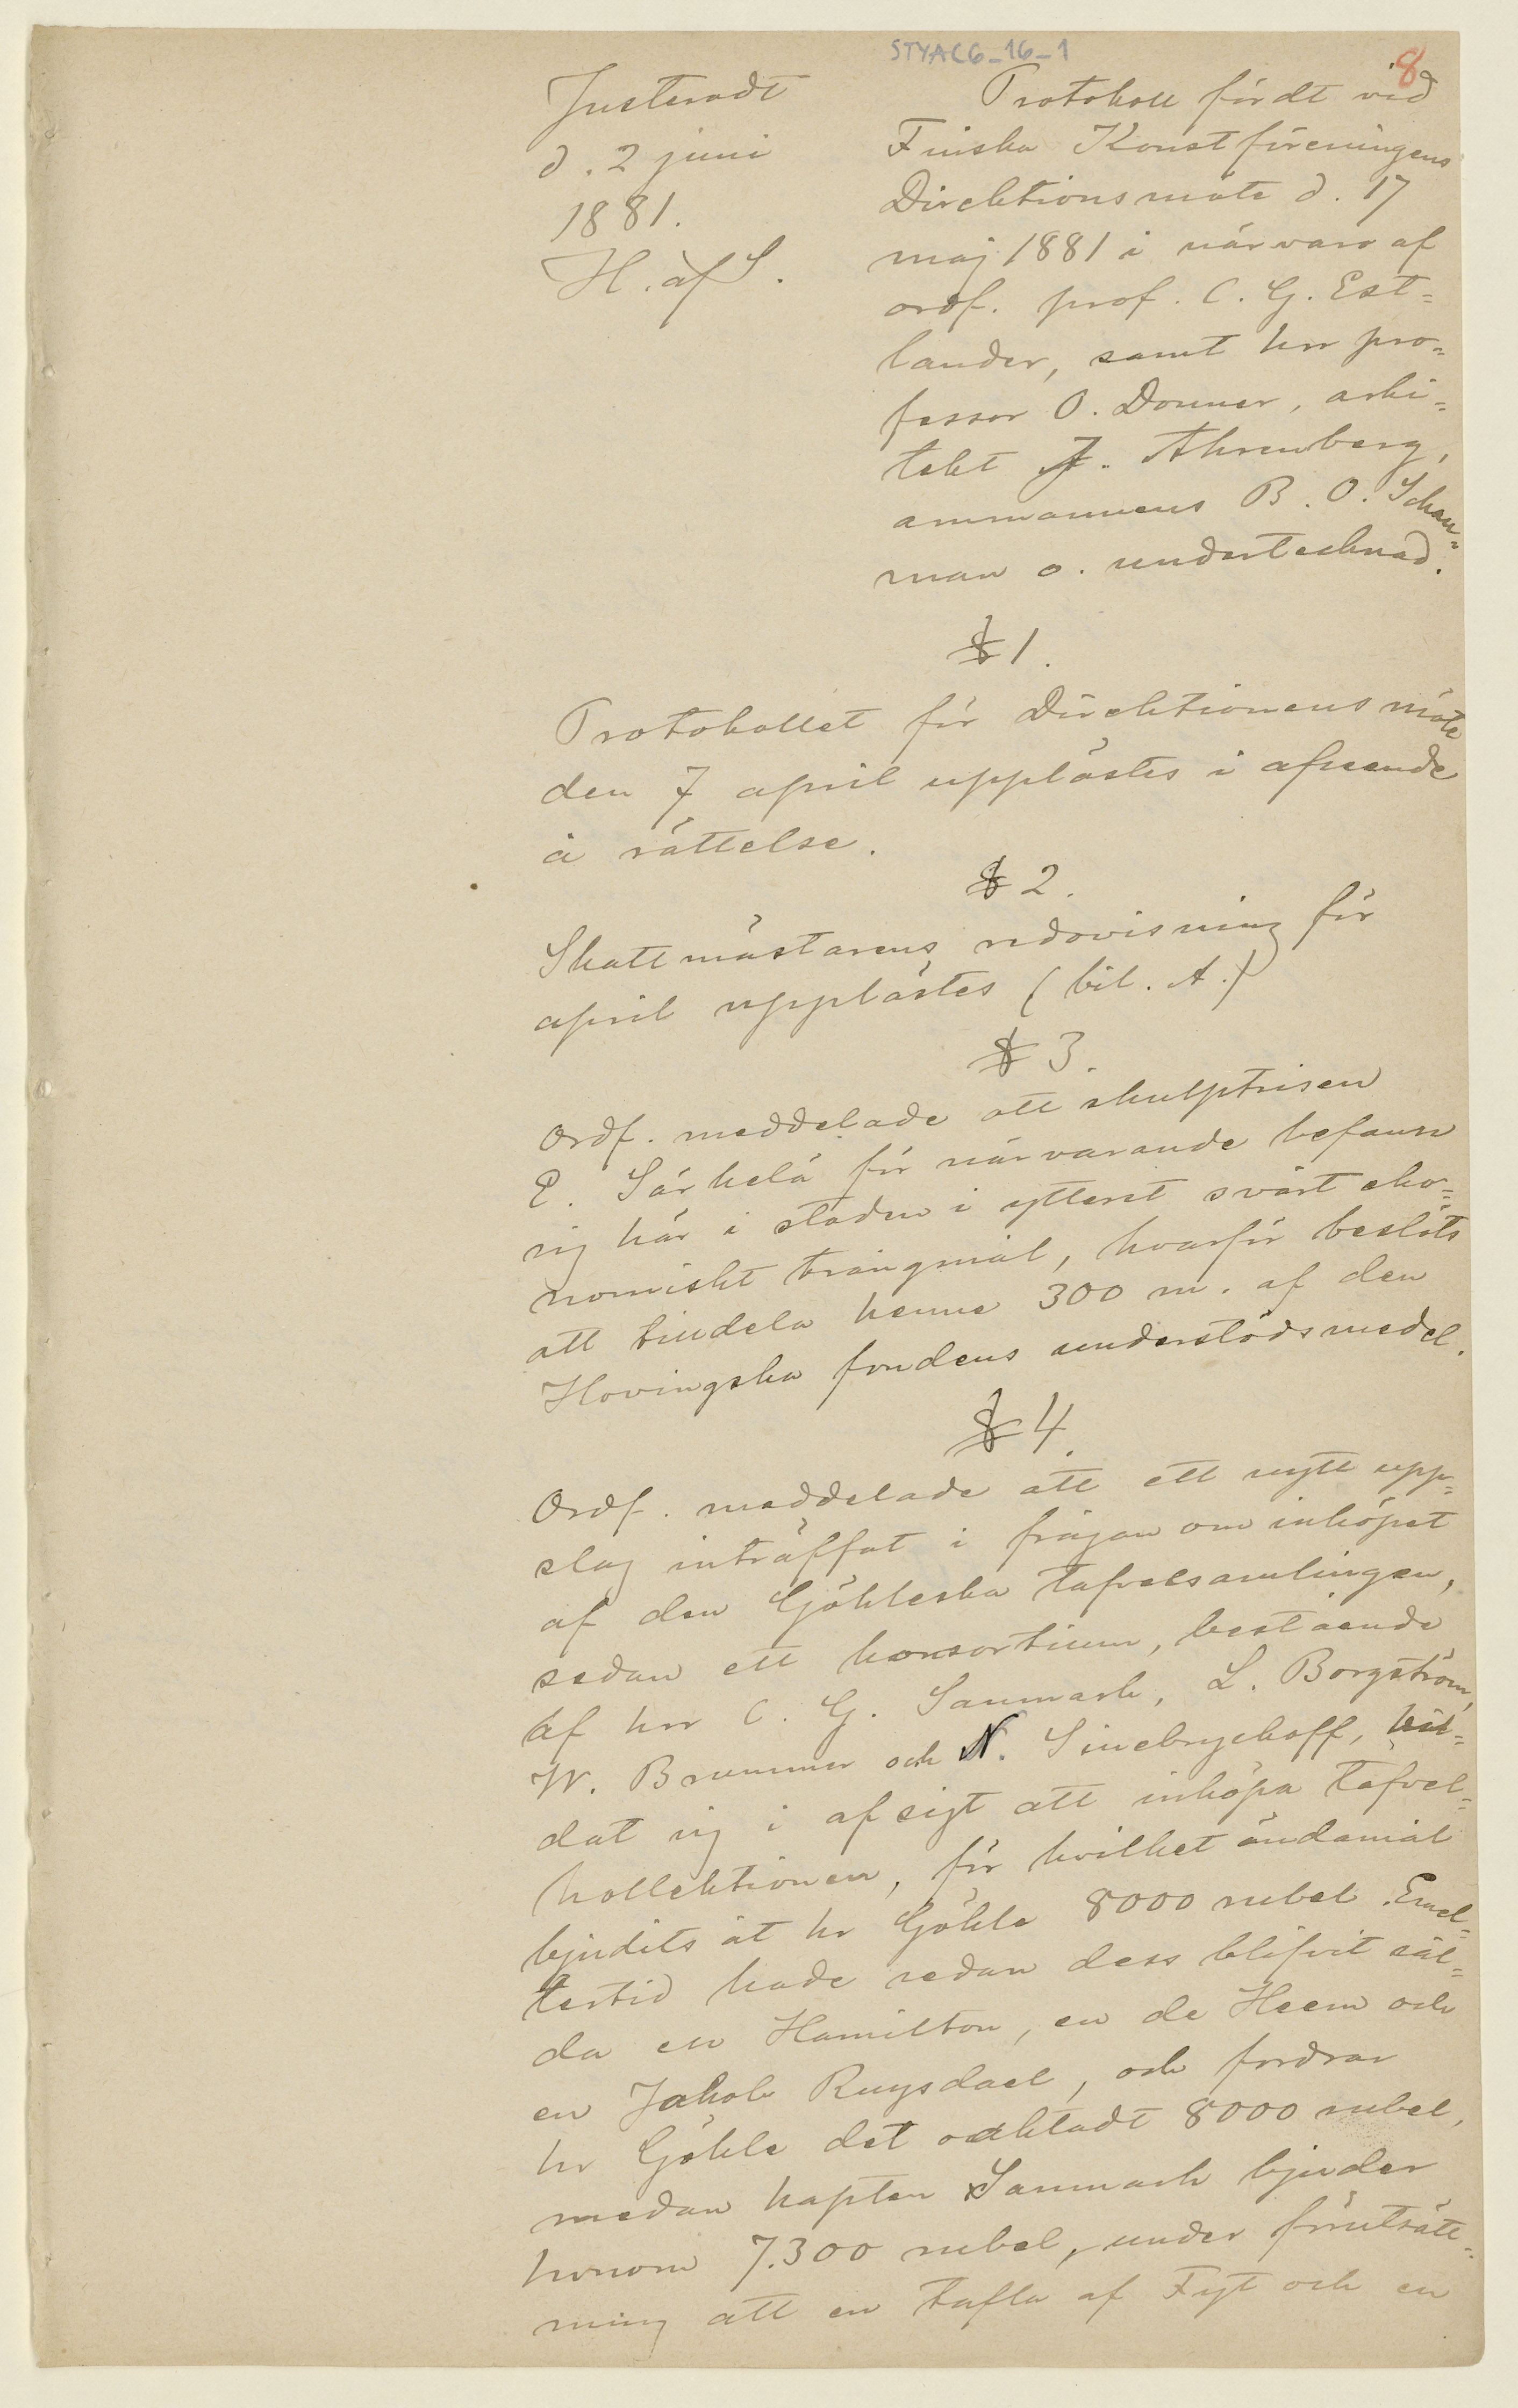 STYAC6_16_1
8
Justeradt
d. 2 juni
1881.
H. af S.
Protokoll fördt vid
Finska Konstföreningens
Direktionsmöte d. 17
maj 1881 i närvaro af
ordf. prof. C. G. Est=
lander, samt hrr pro=
fessor O. Donner, arki=
tekt J. Ahrenberg,
ammanuens B. O. Schau=
man o. undertecknad.
§ 1.
Protokollet för Direktionens möte
den 7 april upplästes i afseende
å rättelse.
§ 2.
Skattmästarens redovisning för
april upplästes (bil. A.)
§ 3.
Ordf. meddelade att skulptrisen
E. Särkelä för närvarande befann
sig här i staden i ytterst svårt eko=
nomiskt trångmål, hvarför beslöts
att tilldela henne 300 m. af den
Hovingska fondens understödsmedel.
§ 4.
Ordf. meddelade att ett nytt upp=
slag inträffat i frågan om inköpet
af den Göhleska tafvelsamlingen,
sedan ett konsortium, bestående
af hrr C. G. Sanmark, L. Borgström,
W. Brummer och N. Sinebrychoff, bil=
dat sig i afsigt att inköpa tafvel=
kollektionen, för hvilket ändamål
bjudits åt hr Göhle 8000 rubel. Emel=
lertid hade sedan dess blifvit säl=
da en Hamilton, en de Heem och
en Jakob Ruysdael, och fordrar
hr Göhle det oaktadt 8000 rubel,
medan kapten Sanmark bjuder
honom 7.300 rubel, under förutsätt=
ning att en tafla af Fyt och en